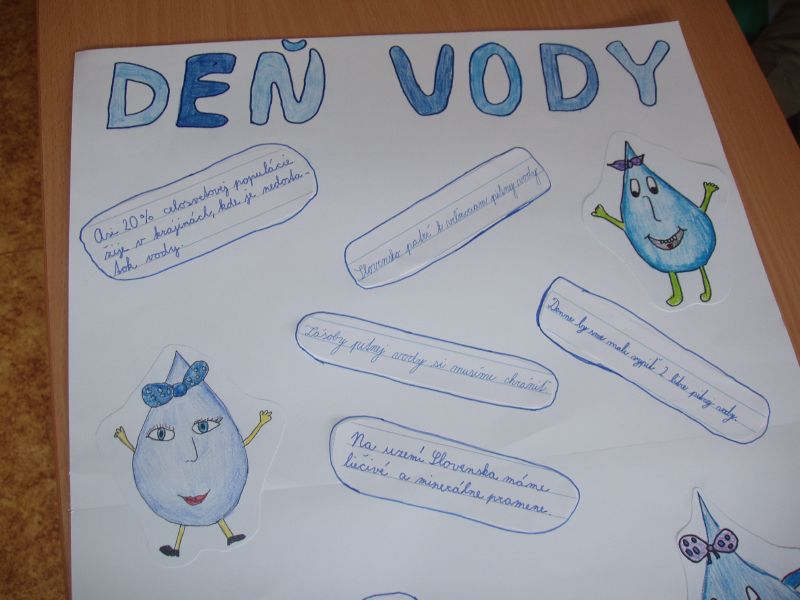 DEŇ VODY
Asi 20% celosvetovej populácie
žije v krajinách, kde je nedosta-
tok vody.
Slovensko patrí k veľmocam pitnej vody
Zásoby pitnej vody si musíme chrániť
Denne by sme mali vypiť 2 litre pitnej vody.
Na uzemí Slovenska máme
liečivé a minerálne pramene.